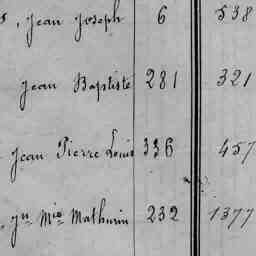 , Jean Joseph 6 538
Jean Baptiste 281 321
Jean Pierre Louis 336 457
, Jn Mie Mathurin 232 1377